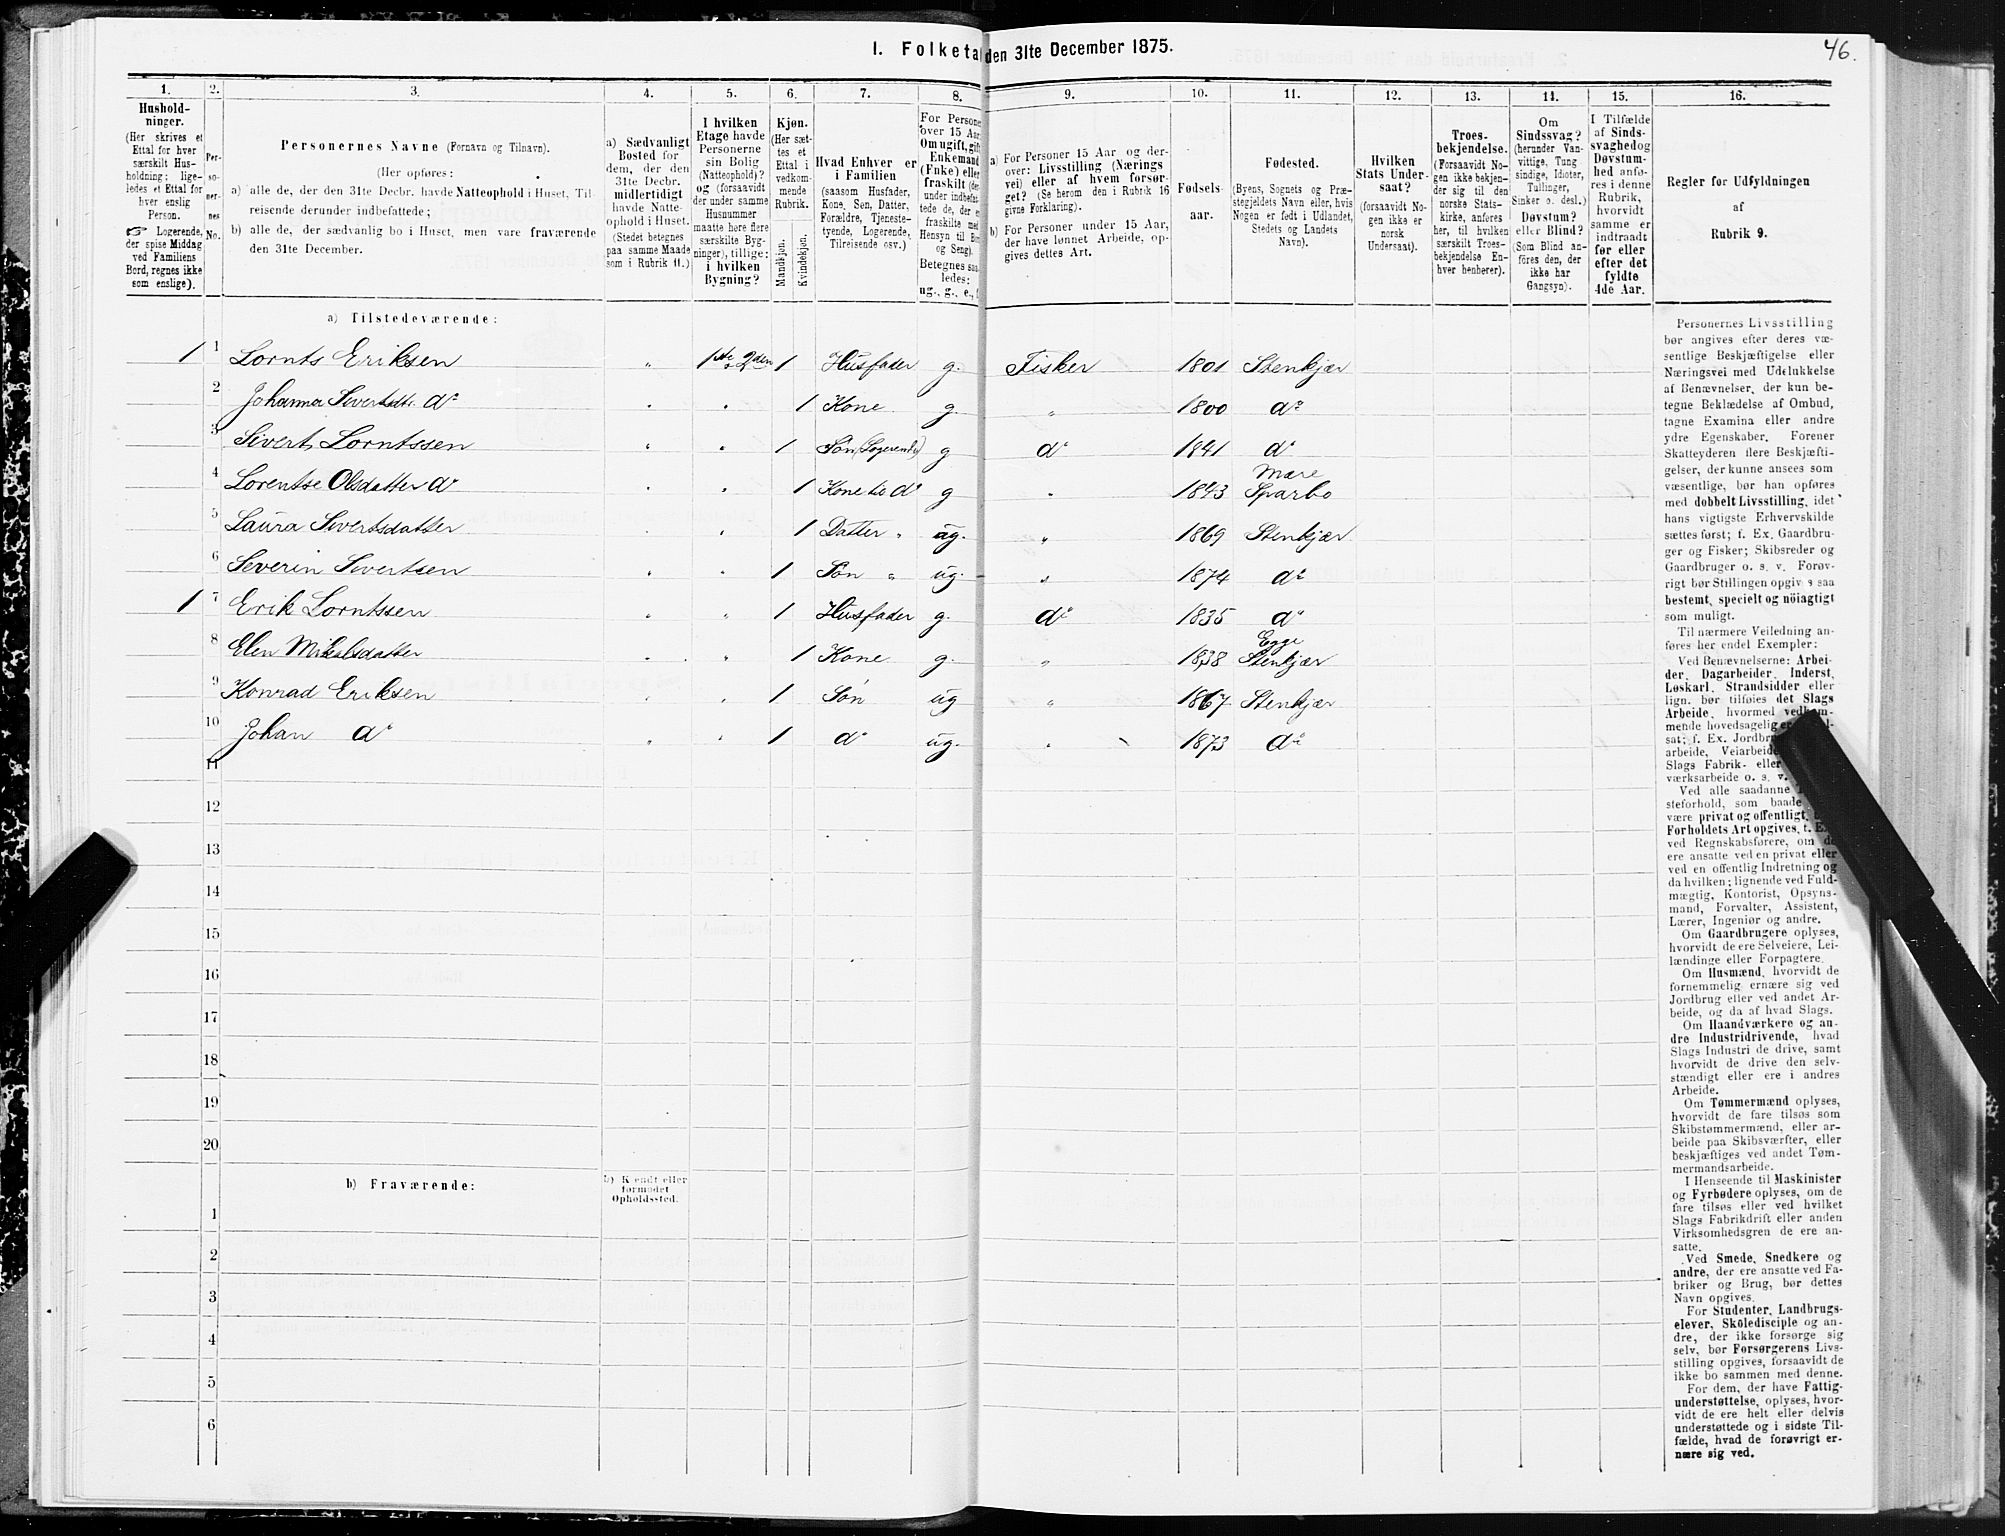 46.
I. Folketal den 31te December 1875.
1. 2. 3. 4. 5. 6. 7. 8. 9. 10. 11. 12. 13. 14. 15. 16.
Hushold-
ninger.
(Her skrives et
Ettal for hver
særskilt Hus-
holdning; lige-
ledes et Ettal for
hver enslig
Person.
☞ Logerende,
der spise Middag
ved Familiens
Bord, regnes ikke
som enslige).
Per-
so-
ner-
nes
No.
Personernes Navne (Fornavn og Tilnavn).
(Her opføres:
a) alle de, der den 31te Decbr. havde Natteophold i Huset, Til-
reisende derunder indbefattede;
b) alle de, der sædvanlig bo i Huset, men vare fraværende
den 31te December.
a) Sædvanligt
Bosted for
dem, der den
31te Decbr.
midlertidigt
havde Natte-
ophold i Huset.
(Stedet betegnes
paa samme Maade
som i Rubrik 11.)
I hvilken
Etage havde
Personerne
sin Bolig
(Natteophold)?
og (forsaavidt
der under samme
Husnummer
maatte høre flere
særskilte Byg-
ninger), tillige:
i hvilken
Bygning?
Kjøn.
(Her sæt-
tes et
Ettal i
vedkom-
mende
Rubrik.
Mandkjøn.
Kvindekjøn.
Hvad Enhver er
i Familien
(saasom Husfader,
Kone, Søn, Datter,
Forældre, Tjeneste-
tyende, Logerende,
Tilreisende osv.)
For Persone
over 15 Aar
Om ugift, gift
Enkemand
(Enke) eller
fraskilt (de
under indbefat-
tede de, der e
fraskilte med
Hensyn til Bor
og Seng).
Betegnes saa-
ledes:
ug., g., e.,
a) For Personer 15 Aar og der-
over: Livsstilling (Nærings
vei) eller af hvem forsør-
get? (Se herom den i Rubrik 16
givne Forklaring).
b) For Personer under 15 Aar,
der have lønnet Arbeide, op-
gives dettes Art.
Fødsels-
aar.
Fødested.
(Byens, Sognets og Præ-
stegjeldets Navn eller, hvis
Nogen er født i Udlandet,
Stedets og Landets
Navn).
Hvilken
Stats Under-
saat?
(forsaavidt No-
gen ikke er
norsk
Undersaat).
Troes-
bekjendelse.
(Forsaavidt No-
gen ikke bekjen-
der sig til den
norske Stats-
kirke, anføres
her, til hvilken
særskilt Troes-
bekjendelse En-
hver henhører).
Om
Sindssvag?
(herunder Van-
vittige, Tung
sindige, Idioter,
Tullinger,
Sinker o. desl.)
Døvstum?
eller Blind?
(Som Blind an-
føres den, der
ikke har
Gangsyn).
I Tilfælde
af Sinds-
svaghed og
Døvstum-
hed anfø-
res i denne
Rubrik,
hvorvidt
samme er
indtraadt
før eller
efter det
fyldte
4de Aar.
Regler for Udfyldningen
af
Rubrik 9.
a) Tilstedeværende:
1 1 Lornts Eriksen " 1ste o 2den 1 Husfader g. Fisker 1801 Stenkjær
2 Johanna Sivertsdtr. do " " 1 Kone g. " 1800 do
3 Sivert Lorntssen " " 1 Søn (Logerende) g do 1841 do
4 Lorentse Olsdatter do " " 1 Kone til do g " 1843 Mære Sparbo
5 Laura Sivertsdatter " " 1 Datter " ug. " 1869 Stenkjær
6 Severin Sivertsen " " 1 Søn " ug. " 1874 do
1 7 Erik Lorntssen " " 1 Husfader g. do 1835 do
8 Elen Mikalsdatter " " 1 Kone g. " 1838 Egge Stenkjær
9 Konrad Eriksen " " 1 Søn ug " 1867 Stenkjær
10 Johan do " " 1 do ug. " 1873 do
11
12
13
14
15
16
17
18
19
20
b) Fraværende:
b) Kjendt eller
formodet
Opholdssted.
1
2
3
4
5
6
Personernes Livsstilling
bør angives efter deres væ-
sentlige Beskjæftigelse eller
Næringsvei med Udelukkelse
af Benævnelser, der kun be-
tegne Beklædelse af Ombud,
tagne Examina eller andre
ydre Egenskaber. Forener
Skatteyderen flere Beskjæfti-
gelser, der kunne ansees som
væsentlige, bør han opføres
med dobbelt Livsstilling, idet
hans vigtigste Erhvervskilde
sættes først; f. Ex. Gaardbru-
ger og Fisker; Skibsreder og
Gaardbruger o. s. v. Forøv-
rigt bør Stillingen opgives saa
bestemt, specielt og nöiagtigt
som muligt.
Til nærmere Veiledning an-
føres her endel Exempler:
Ved Benævnelserne: Arbei-
der, Dagarbeider, Inderst,
Løskarl, Strandsidder eller
lign. bør tilføies det Slags
Arbeide, hvormed vedkom-
mende hovedsagelig er
sat; f. Ex. Jordbr
arbeide, Veiarbeide
Slags Fabrik- eller
værksarbeide o. s. v.
Ved alle saadanne
steforhold, som baade
være privat og offentligt,
Forholdets Art opgives, f. Ex.
ved Regnskabsførere, om de
ere ansatte ved en privat eller
ved en offentlig Indretning og
da hvilken; lignende ved Fuld-
mægtig, Kontorist, Opsyns-
mand, Forvalter, Assistent,
Lærer, Ingeniør og andre.
Om Gaardbrugere oplyses,
hvorvidt de ere Selveiere, Lei-
lændinge eller Forpagtere.
Om Husmænd, hvorvidt de
fornemmelig ernære sig ved
Jordbrug eller ved andet Ar-
beide, og da af hvad Slags.
Om Haandværkere og an-
dre Industridrivende, hvad
Slags Industri de drive, samt
hvorvidt de drive den selv-
stændigt eller ere i andres
Arbeide.
Om Tømmermænd oplyses,
hvorvidt de fare tilsøs som
Skibstømmermænd, eller ar-
beide paa Skibsværfter, eller
beskjæftiges ved andet Tøm-
mermandsarbeide.
I Henseende til Maskinister
og Fyrbødere oplyses, om de
fare tilsøs eller ved hvilket
Slags Fabrikdrift eller anden
Virksomhedsgren de ere an-
satte.
Ved Smede, Snedkere og
andre, der ere ansatte ved Fa-
briker og Brug, bør dettes
Navn opgives.
For Studenter, Landbrugs-
elever, Skoledisciple og an-
dre, der ikke forsørge sig
selv, bør Forsørgerens Livs-
stilling opgives, forsaavidt de
ikke bo sammen med denne.
For dem, der have Fattig-
understøttelse, oplyses, hvor-
vidt de ere helt eller delvis
understøttede og i sidste Til-
fælde, hvad de forøvrigt er-
nære sig ved.